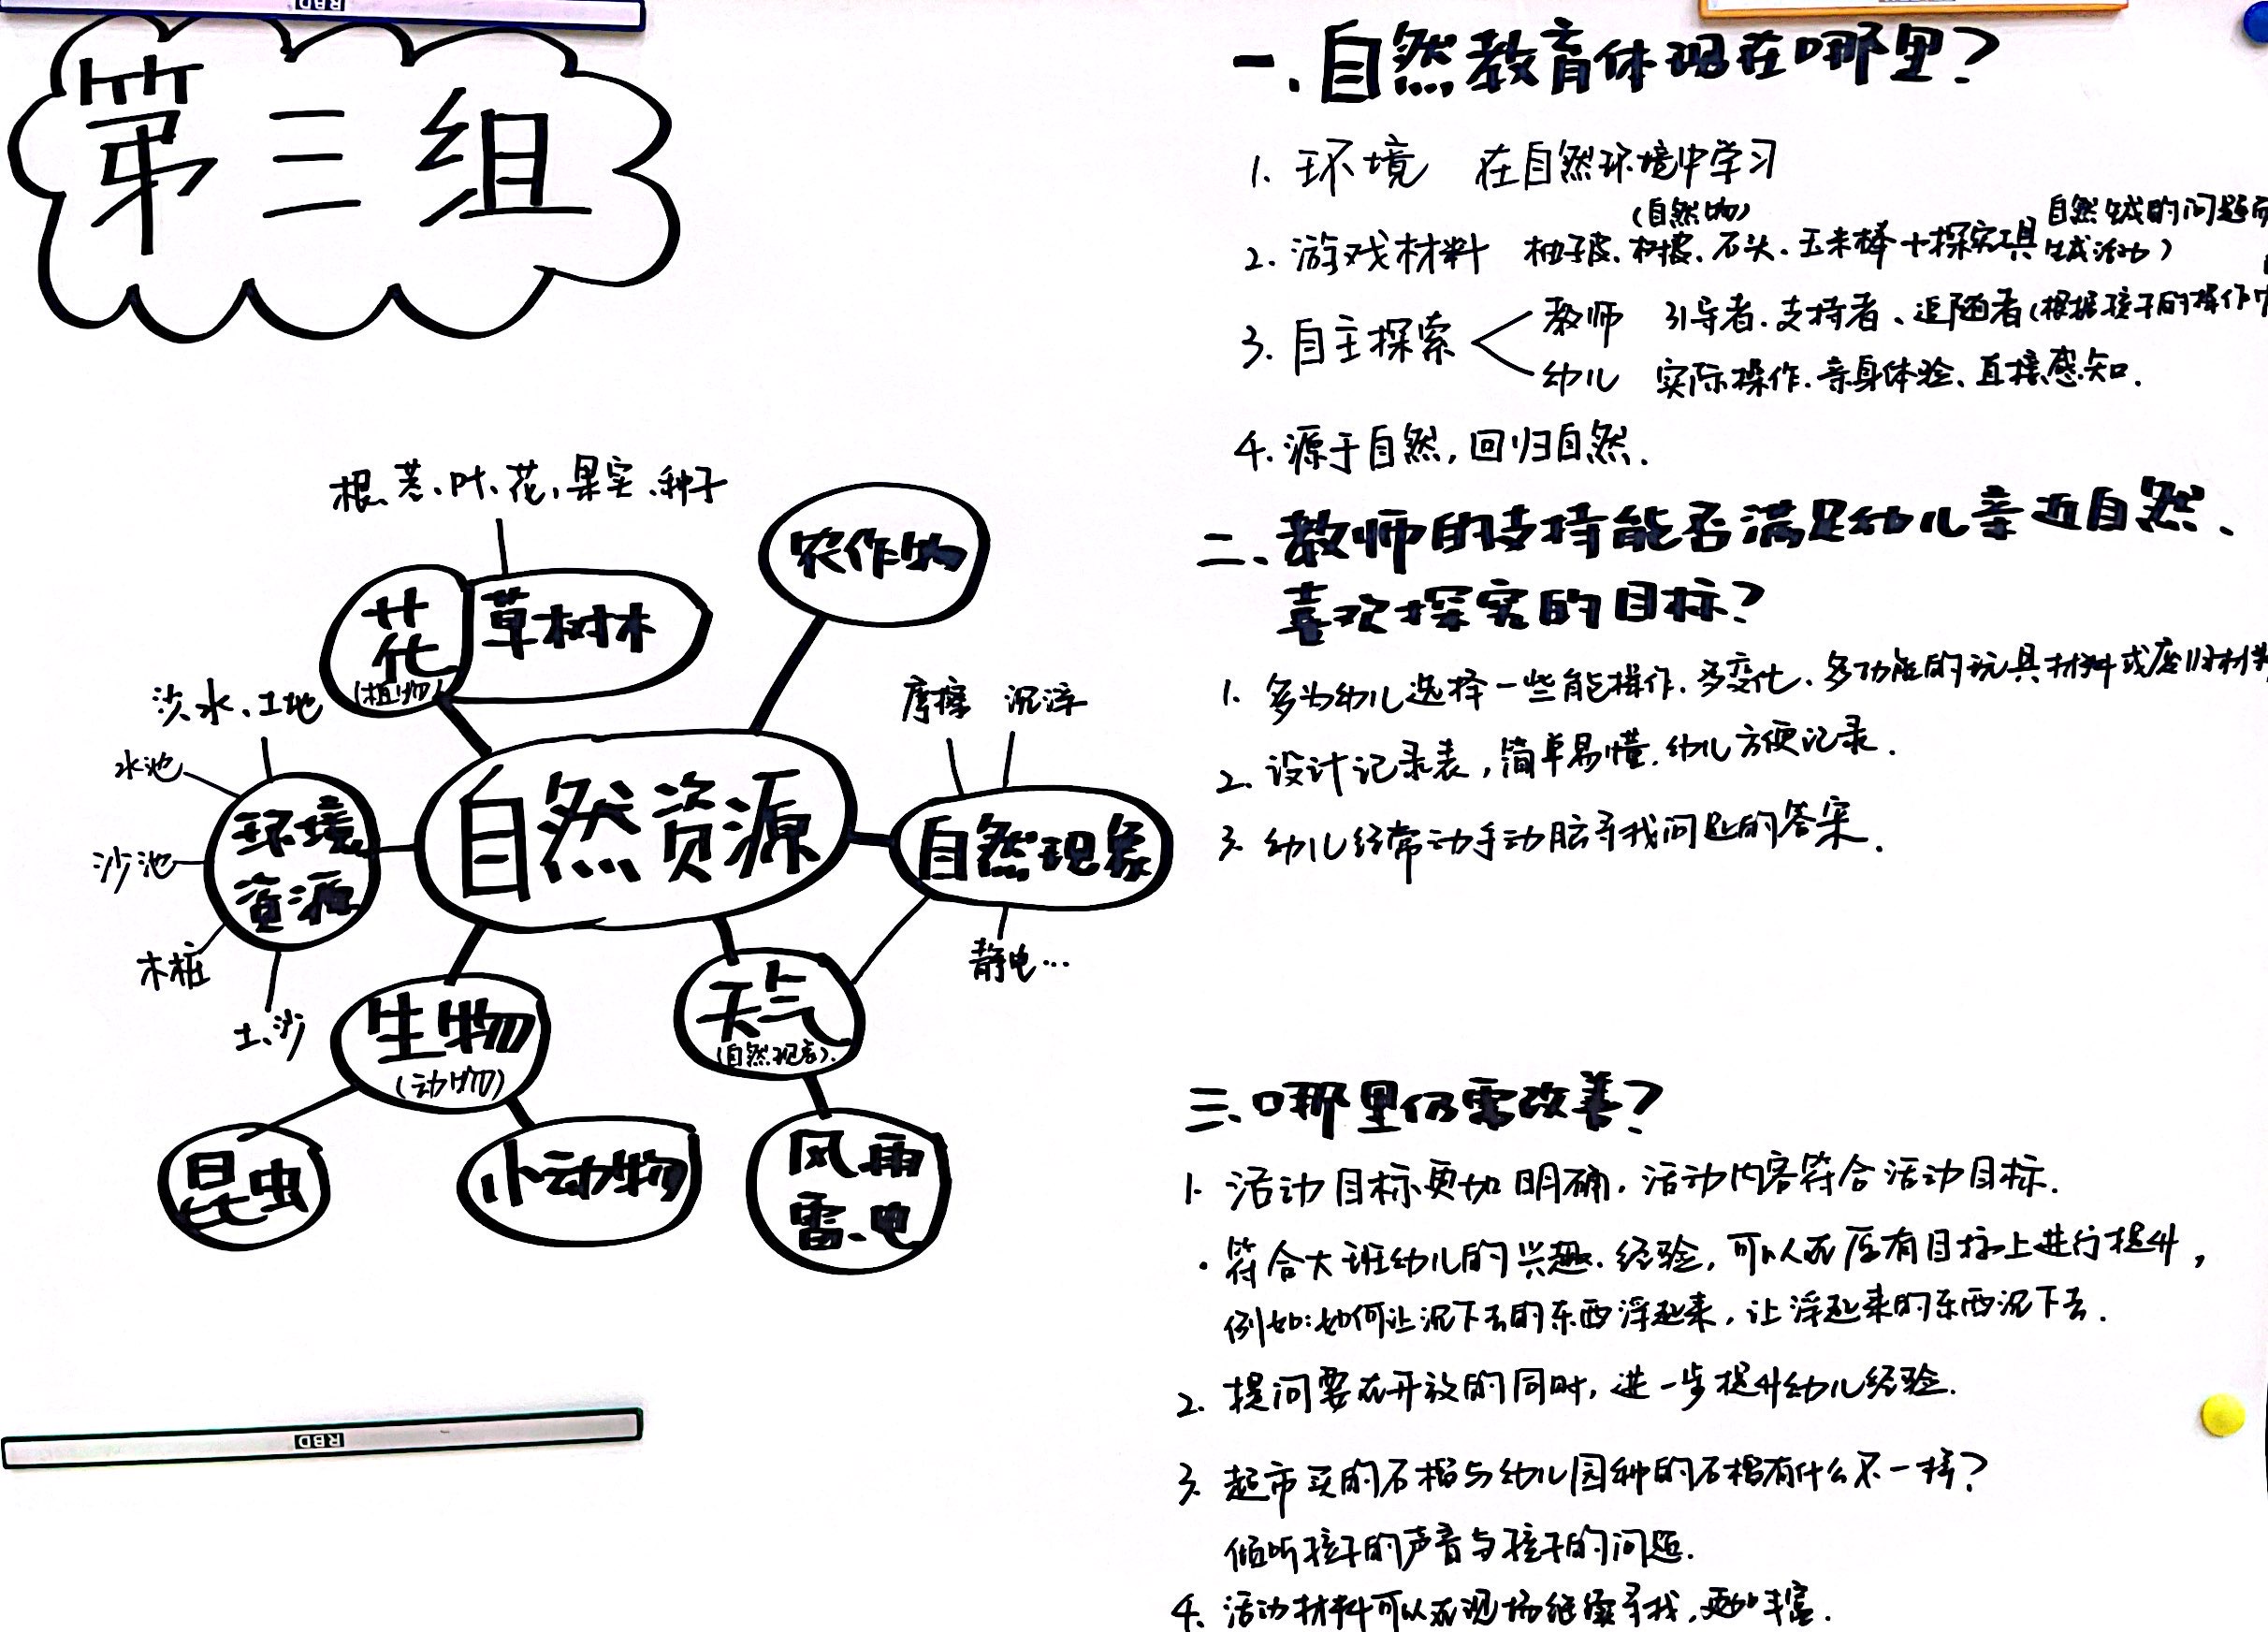 RBD
第三组
根、茎、叶、花、果实、种子
农作物
花
(植物)
草树木
沙、水、工地
水池
沙池
木桩
土、沙
环境
资源
自然资源
摩擦 沉浮
自然现象
静电…
天气
(自然现象).
生物
(动物)
昆虫
小动物
风雨
雷、电
RBD
一、自然教育体现在哪里？
1. 环境 在自然环境中学习
(自然物)
2. 游戏材料 柚子皮、树皮、石头、玉米棒+探究工具
自然生成的问题
生成活动)
3. 自主探索
教师 引导者、支持者、追随者(根据孩子的操作中
幼儿 实际操作、亲身体验、直接感知.
4. 源于自然，回归自然.
二、教师的支持能否满足幼儿亲近自然、
喜欢探究的目标？
1. 多为幼儿选择一些能操作、多变化、多功能的玩具材料或废旧材料
2. 设计记录表，简单易懂，幼儿方便记录.
3. 幼儿经常动手动脑寻找问题的答案.
三、哪里仍需改善？
1. 活动目标更加明确，活动内容符合活动目标.
· 符合大班幼儿的兴趣、经验，可以在原有目标上进行提升，
例如：如何让沉下去的东西浮起来，让浮起来的东西沉下去.
2. 提问要在开放的同时，进一步提升幼儿经验.
3. 超市买的石榴与幼儿园种的石榴有什么不一样？
倾听孩子的声音与孩子的问题.
4. 活动材料可以在现场继续寻找，更加丰富.